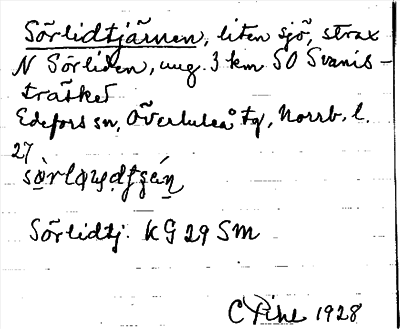 Sörlidtjärnen, liten sjö, strax
N Sörliden, ung. 3 km SO Svanis-
träsket
Edefors sn, Överluleå tg, Norrb. l.
27
Sörlidtj. KG 29 SM
1928